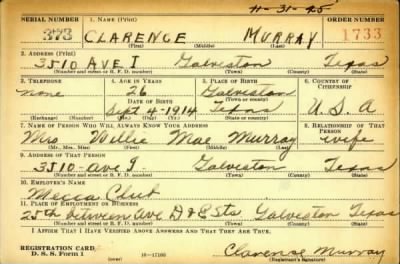 11-31-45
SERIAL NUMBER 1. NAME (Print) ORDER NUMBER
373 CLARENCE MURRAY 1733
(First) (Middle) (Last)
2. ADDRESS (Print)
3510 AVE I Galveston Texas
(Number and street or R. F. D. number) (Town) (County) (State)
3. TELEPHONE 4. AGE IN YEARS 5. PLACE OF BIRTH 6. COUNTRY OF CITIZENSHIP
None 26 Galveston
DATE OF BIRTH (Town or county)
Sept 4-1914 Texas U.S.A
(Exchange) (Number) (Mo.) (Day) (Yr.) (State or country)
7. NAME OF PERSON WHO WILL ALWAYS KNOW YOUR ADDRESS 8. RELATIONSHIP OF THAT PERSON
Mrs Willie Mae Murray wife
(Mr., Mrs., Miss) (First) (Middle) (Last)
9. ADDRESS OF THAT PERSON
3510-ave I. Galveston Texas
(Number and street or R. F. D. number) (Town) (County) (State)
10. EMPLOYER'S NAME
Mecca Club
11. PLACE OF EMPLOYMENT OR BUSINESS
25th between ave D & E Sts Galveston Texas
(Number and street or R. F. D. number) (Town) (County) (State)
I AFFIRM THAT I HAVE VERIFIED ABOVE ANSWERS AND THAT THEY ARE TRUE.
REGISTRATION CARD
D. S. S. Form 1 16-17105 Clarence Murray
(Registrant's signature)